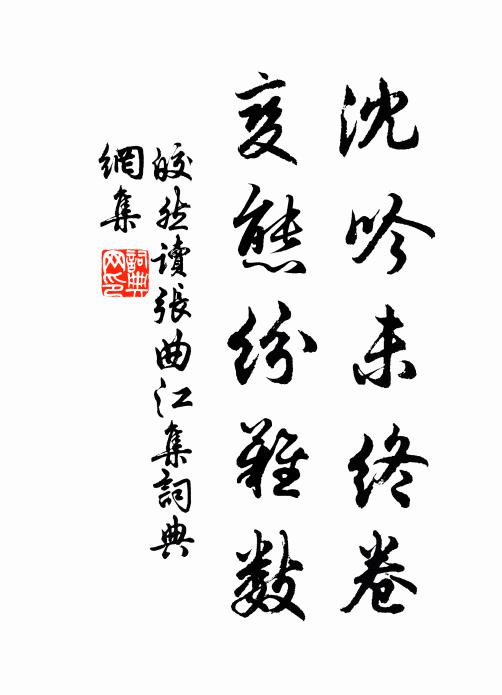 沈吟未終卷
变態紛難數
皎然讀張曲江集詞典
網集
詞典
网印